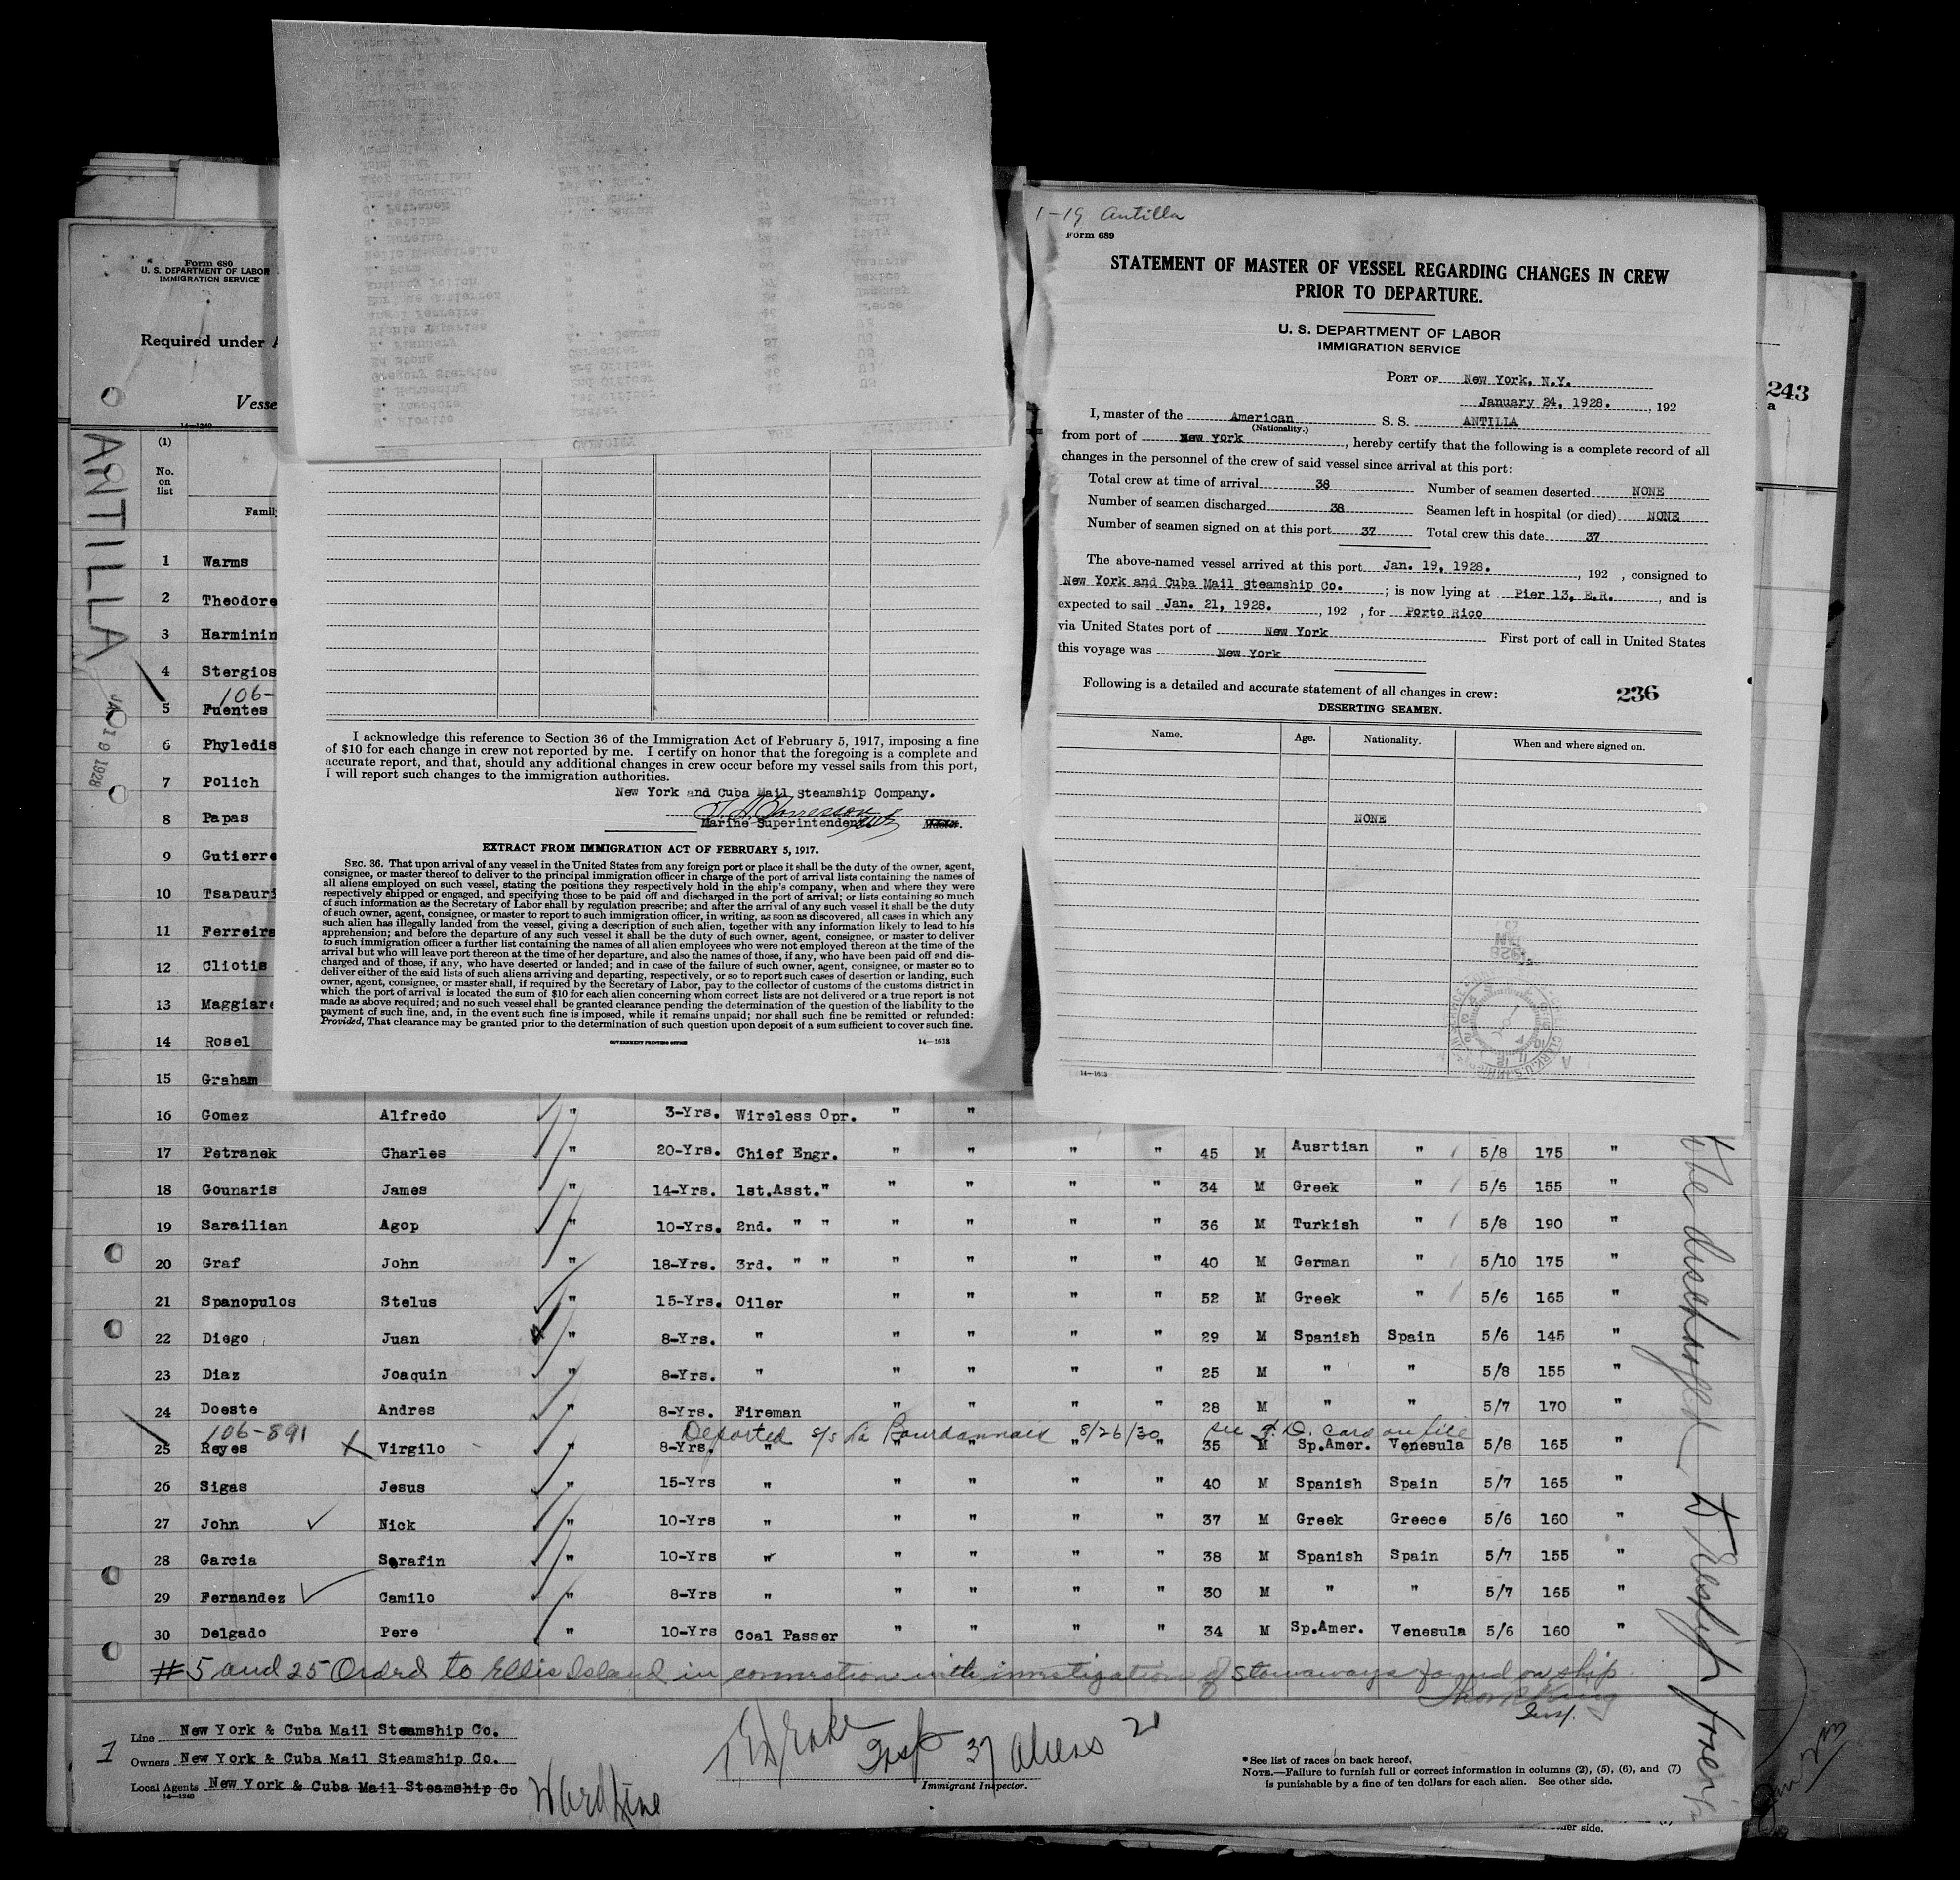 Form 680
U. S. DEPARTMENT OF LABOR
IMMIGRATION SERVICE
Required under A
Vesse
14—1240
ANTILLA
JAN 19 1928
(1)
No.
on
list
Famil
1 Warms
2 Theodore
3 Harminin
4 Stergios
106-
5 Fuentes
6 Phyledis
7 Polich
8 Papas
9 Gutierre
10 Tsapauri
11 Ferreira
12 Cliotis
13 Maggiare
14 Rosel
15 Graham
I acknowledge this reference to Section 36 of the Immigration Act of February 5, 1917, imposing a fine
of $10 for each change in crew not reported by me. I certify on honor that the foregoing is a complete and
accurate report, and that, should any additional changes in crew occur before my vessel sails from this port,
I will report such changes to the immigration authorities.
New York and Cuba Mail Steamship Company.
Marine Superintendent
EXTRACT FROM IMMIGRATION ACT OF FEBRUARY 5, 1917.
SEC. 36. That upon arrival of any vessel in the United States from any foreign port or place it shall be the duty of the owner, agent,
consignee, or master thereof to deliver to the principal immigration officer in charge of the port of arrival lists containing the names of
all aliens employed on such vessel, stating the positions they respectively hold in the ship's company, when and where they were
respectively shipped or engaged, and specifying those to be paid off and discharged in the port of arrival; or lists containing so much
of such information as the Secretary of Labor shall by regulation prescribe; and after the arrival of any such vessel it shall be the duty
of such owner, agent, consignee, or master to report to such immigration officer, in writing, as soon as discovered, all cases in which any
such alien has illegally landed from the vessel, giving a description of such alien, together with any information likely to lead to his
apprehension; and before the departure of any such vessel it shall be the duty of such owner, agent, consignee, or master to deliver
to such immigration officer a further list containing the names of all alien employees who were not employed thereon at the time of the
arrival but who will leave port thereon at the time of her departure, and also the names of those, if any, who have been paid off and dis-
charged and of those, if any, who have deserted or landed; and in case of the failure of such owner, agent, consignee, or master so to
deliver either of the said lists of such aliens arriving and departing, respectively, or so to report such cases of desertion or landing, such
owner, agent, consignee, or master shall, if required by the Secretary of Labor, pay to the collector of customs of the customs district in
which the port of arrival is located the sum of $10 for each alien concerning whom correct lists are not delivered or a true report is not
made as above required; and no such vessel shall be granted clearance pending the determination of the question of the liability to the
payment of such fine, and, in the event such fine is imposed, while it remains unpaid; nor shall such fine be remitted or refunded:
Provided, That clearance may be granted prior to the determination of such question upon deposit of a sum sufficient to cover such fine.
GOVERNMENT PRINTING OFFICE 14—1613
1-19 Antilla
Form 689
STATEMENT OF MASTER OF VESSEL REGARDING CHANGES IN CREW
PRIOR TO DEPARTURE.
U. S. DEPARTMENT OF LABOR
IMMIGRATION SERVICE
PORT OF New York, N.Y.
January 24, 1928. , 192
I, master of the American S. S. ANTILLA
(Nationality.)
from port of New York , hereby certify that the following is a complete record of all
changes in the personnel of the crew of said vessel since arrival at this port:
Total crew at time of arrival 38 Number of seamen deserted NONE
Number of seamen discharged 38 Seamen left in hospital (or died) NONE
Number of seamen signed on at this port 37 Total crew this date 37
The above-named vessel arrived at this port Jan. 19, 1928. , 192 , consigned to
New York and Cuba Mail Steamship Co. ; is now lying at Pier 13, E.R. , and is
expected to sail Jan. 21, 1928. , 192 , for Porto Rico
via United States port of New York First port of call in United States
this voyage was New York
Following is a detailed and accurate statement of all changes in crew: 236
DESERTING SEAMEN.
Name. Age. Nationality. When and where signed on.
NONE
14—1613
243
a
16 Gomez Alfredo " 3-Yrs. Wireless Opr. " "
17 Petranek Charles " 20-Yrs. Chief Engr. " " " " 45 M Ausrtian " 5/8 175 "
18 Gounaris James " 14-Yrs. 1st.Asst." " " " " 34 M Greek " 5/6 155 "
19 Sarailian Agop " 10-Yrs. 2nd. " " " " " " 36 M Turkish " 5/8 190 "
20 Graf John " 18-Yrs. 3rd. " " " " " " 40 M German " 5/10 175 "
21 Spanopulos Stelus " 15-Yrs. Oiler " " " " 52 M Greek " 5/6 165 "
22 Diego Juan " 8-Yrs. " " " " " 29 M Spanish Spain 5/6 145 "
23 Diaz Joaquin " 8-Yrs. " " " " " 25 M " " 5/8 155 "
24 Doeste Andres " 8-Yrs. Fireman " " " " 28 M " " 5/7 170 "
106-891 Deported s/s La Bourdonnais 8/26/30 see card on file
25 Reyes Virgilo " 8-Yrs. " " " " " 35 M Sp.Amer. Venesula 5/8 165 "
26 Sigas Jesus " 15-Yrs " " " " " 40 M Spanish Spain 5/7 165 "
27 John Nick " 10-Yrs " " " " " 37 M Greek Greece 5/6 160 "
28 Garcia Serafin " 10-Yrs " " " " " 38 M Spanish Spain 5/7 155 "
29 Fernandez Camilo " 8-Yrs " " " " " 30 M " " 5/7 165 "
30 Delgado Pere " 10-Yrs Coal Passer " " " " 34 M Sp.Amer. Venesula 5/6 160 "
#5 and 25 Ordrd to Ellis Island in connection with investigation of stowaways found on ship.
Insp.
Line New York & Cuba Mail Steamship Co.
1 Owners New York & Cuba Mail Steamship Co.
Local Agents New York & Cuba Mail Steamship Co
14—1240
Ward Line
Insp 37 aliens 21
Immigrant Inspector.
*See list of races on back hereof.
NOTE.—Failure to furnish full or correct information in columns (2), (5), (6), and (7)
is punishable by a fine of ten dollars for each alien. See other side.
to be discharged to Reship foreign
er side.